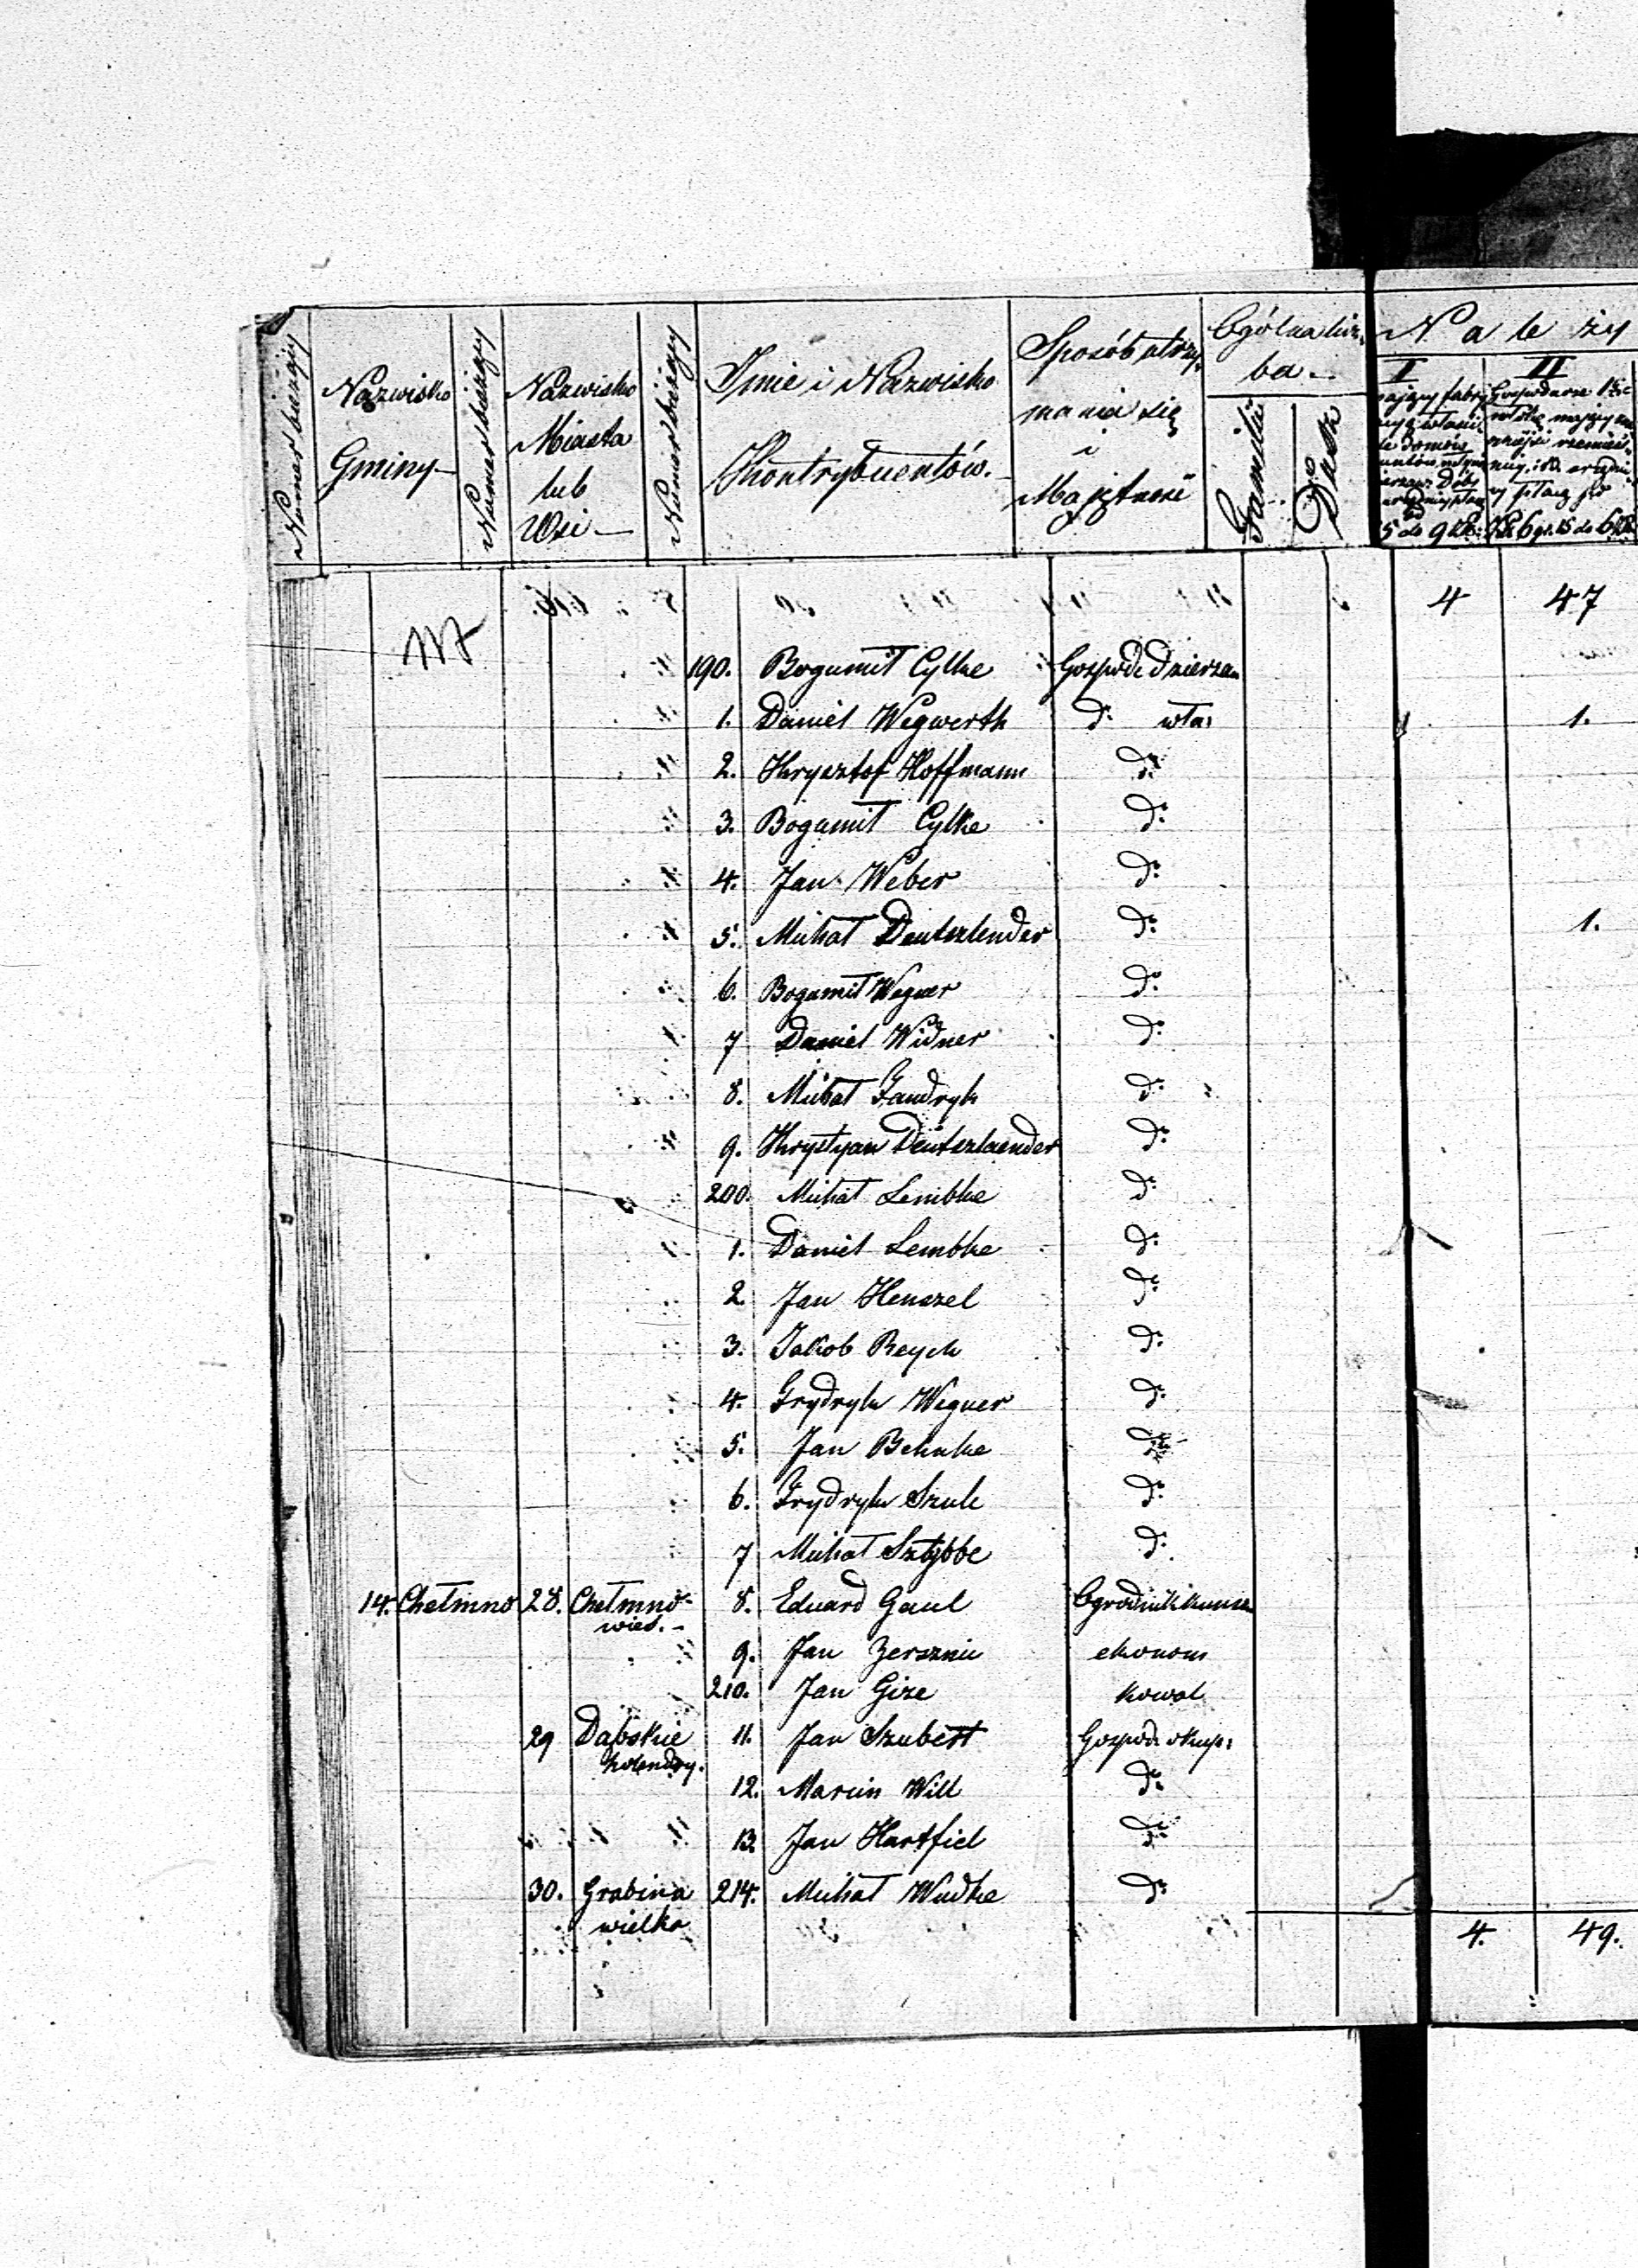 Numer bieżący
Nazwisko Gminy
Numer bieżący
Nazwisko Miasta lub Wsi
Numer bieżący
Imie i Nazwisko Kontrybuentów.
Sposób utrzymania się i Majętność
Ogólna liczba
Familii
Dusz
Należy
I
II
5 do 9
4 47
190. Bogumił Cylke Gospod: dzierża
1. Daniel Wegwerth d: wła: 1.
2. Krysztof Hoffmann d:
3. Bogumił Cylke d:
4. Jan Weber d:
5. Michał Deutszlender d: 1.
6. Bogumił Wegner d:
7 Daniel Widner d:
8. Michał Jandryk d:
9. Krystyan Deutszlaender d:
200. Michał Lembke d:
1. Daniel Lembke d:
2. Jan Henszel d:
3. Jakob Reych d:
4. Frydryk Wegner d:
5. Jan Behnke d:
6. Frydryk Szulc d:
7 Michał Sztybbe d:
14. Chełmno 28. Chełmno wieś. 8. Eduard Gaul Ogrodnik
9. Jan ekonom
210. Jan Gize kowal
29 Dąbskie holendry. 11. Jan Szubert Gospod: okup:
12. Marcin Will d:
13. Jan Hartfiel d:
30. Grabina wielka 214. Michał Wudke d:
4. 49.